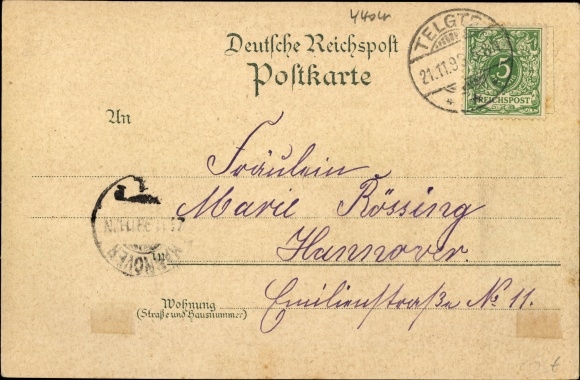 44olr
Deutsche Reichspost
Postkarte
TELGTE
21.11.9
5
REICHSPOST
An
Fräulein
Marie Rössing
in
Hannover.
HANNOVER
Wohnung
(Straße und Hausnummer)
Emilienstraße No 11.